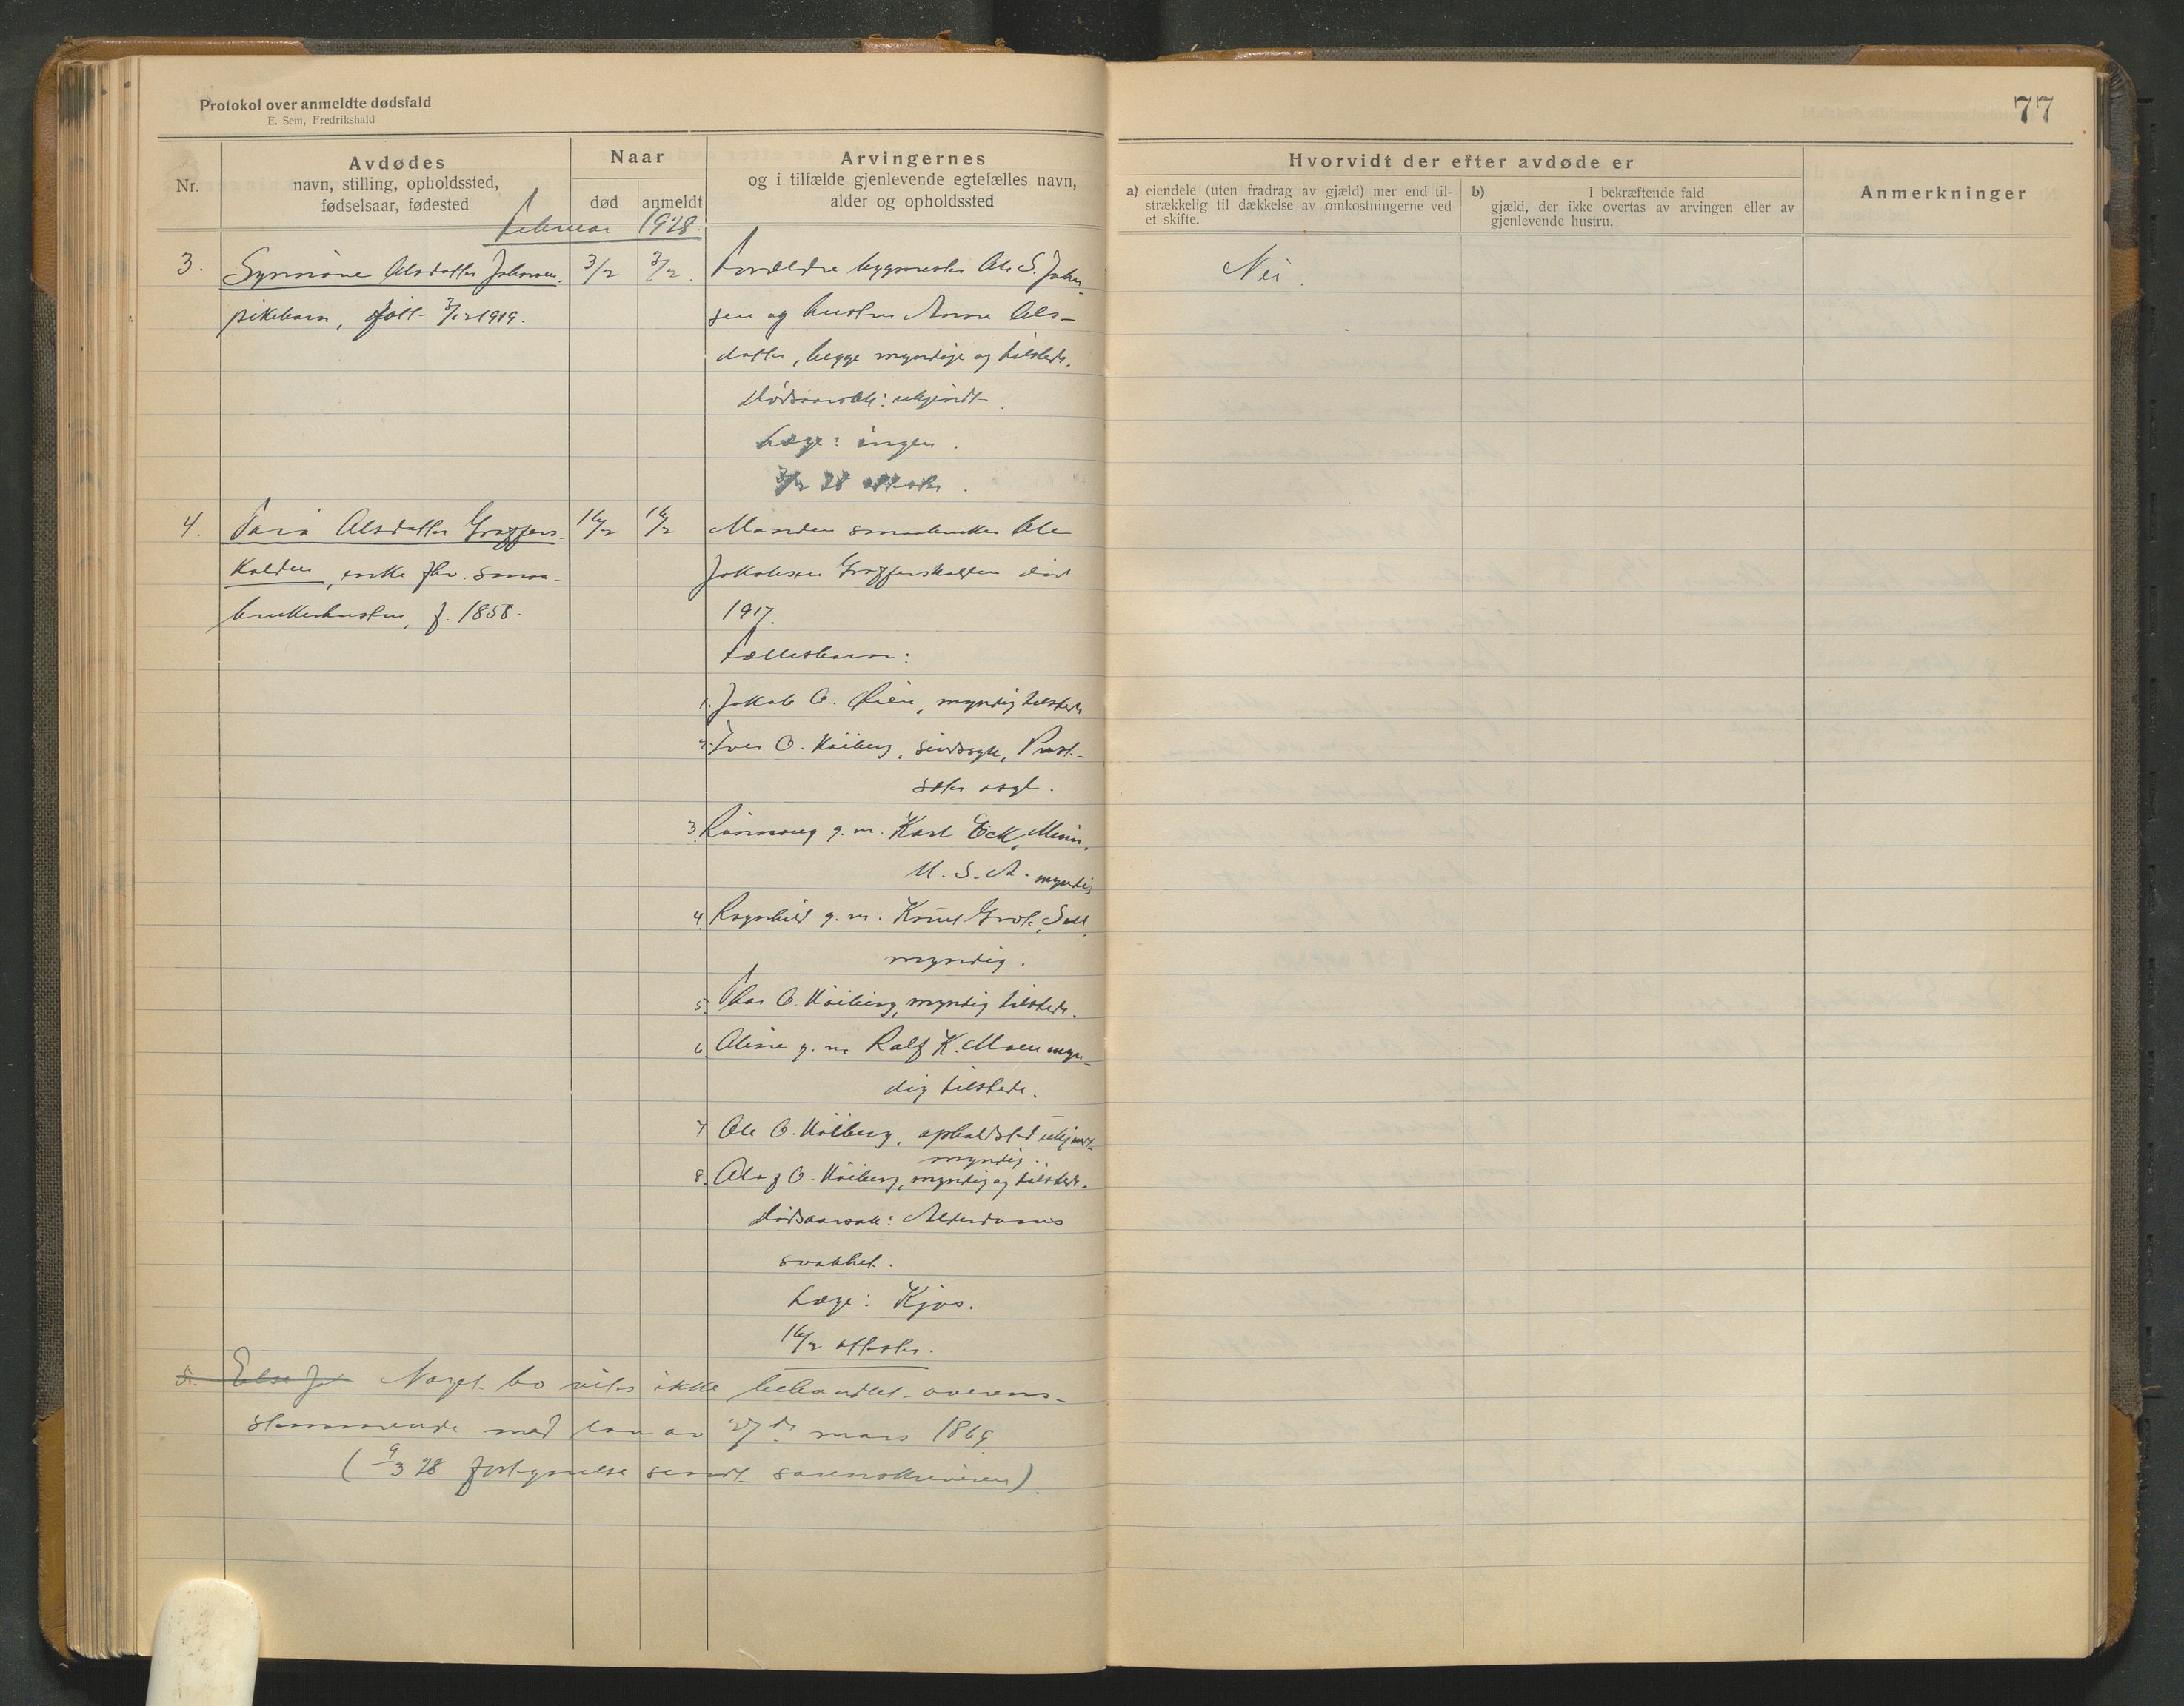 Protokol over anmeldte dødsfald
E. Sem, Fredrikshald
77
Nr.
Avdødes
navn, stilling, opholdssted,
fødselsaar, fødested
Naar
død
anmeldt
Arvingernes
og i tilfælde gjenlevende egtefælles navn,
alder og opholdssted
Hvorvidt der efter avdøde er
a) eiendele (uten fradrag av gjæld) mer end til-
strækkelig til dækkelse av omkostningerne ved
et skifte.
b) I bekræftende fald
gjæld, der ikke overtas av arvingen eller av
gjenlevende hustru.
Anmerkninger
Februar 1928.
3.
Synnøve Olsdatter Johnsen,
pikebarn, født 3/12 1919.
3/2
3/2.
Forældre bygmester Ole S. John-
sen og hustru Anne Ols-
datter, begge myndige og tilstede.
Dødsaarsak: ukjendt.
Læge: ingen.
3/2 28 attester.
Nei.
4.
Paria Olsdatter Graffers-
kolden, enke fhv. smaa-
brukerhustru, f. 1858.
16/2
16/2
Manden smaabruker Ole
Jakobsen Grafferskolden død
1917.
Fællesbarn:
1. Jakob O. Øien, myndig tilstede
2. Iver O. Høiberg, sindssyk, Prest-
seter asyl.
3. Rønnaug g. m. Karl Eck, Minn.
U. S. A. myndig
4. Ragnhild g. m. Knut Grot, Sell
myndig.
5. Thor O. Høiberg, myndig tilstede.
6. Oline g. m. Ralf K. Moen myn-
dig tilstede.
7 Ole O. Høiberg, opholdsted ukjendt
myndig.
8. Olaf O. Høiberg, myndig og tilstede.
Dødsaarsak: Alderdoms
svakhet.
Læge: Kjos.
16/2 attester.
5. Else Jo Noget bo vites ikke behandlet overens-
stemmende med lov av 27de mars 1869
(9/3 28 fortegnelse sendt sorenskriveren).